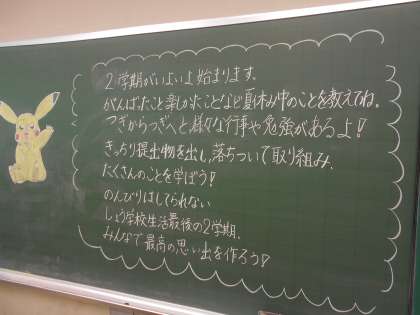 2学期がいよいよ始まります。
がんばったこと楽しかったことなど夏休み中のことを教えてね。
つぎからつぎへと様々な行事や勉強があるよ!
きっちり提出物を出し、落ちついて取り組み、
たくさんのことを学ぼう!
のんびりはしてられない
しょう学校生活最後の2学期、
みんなで最高の思い出を作ろう!